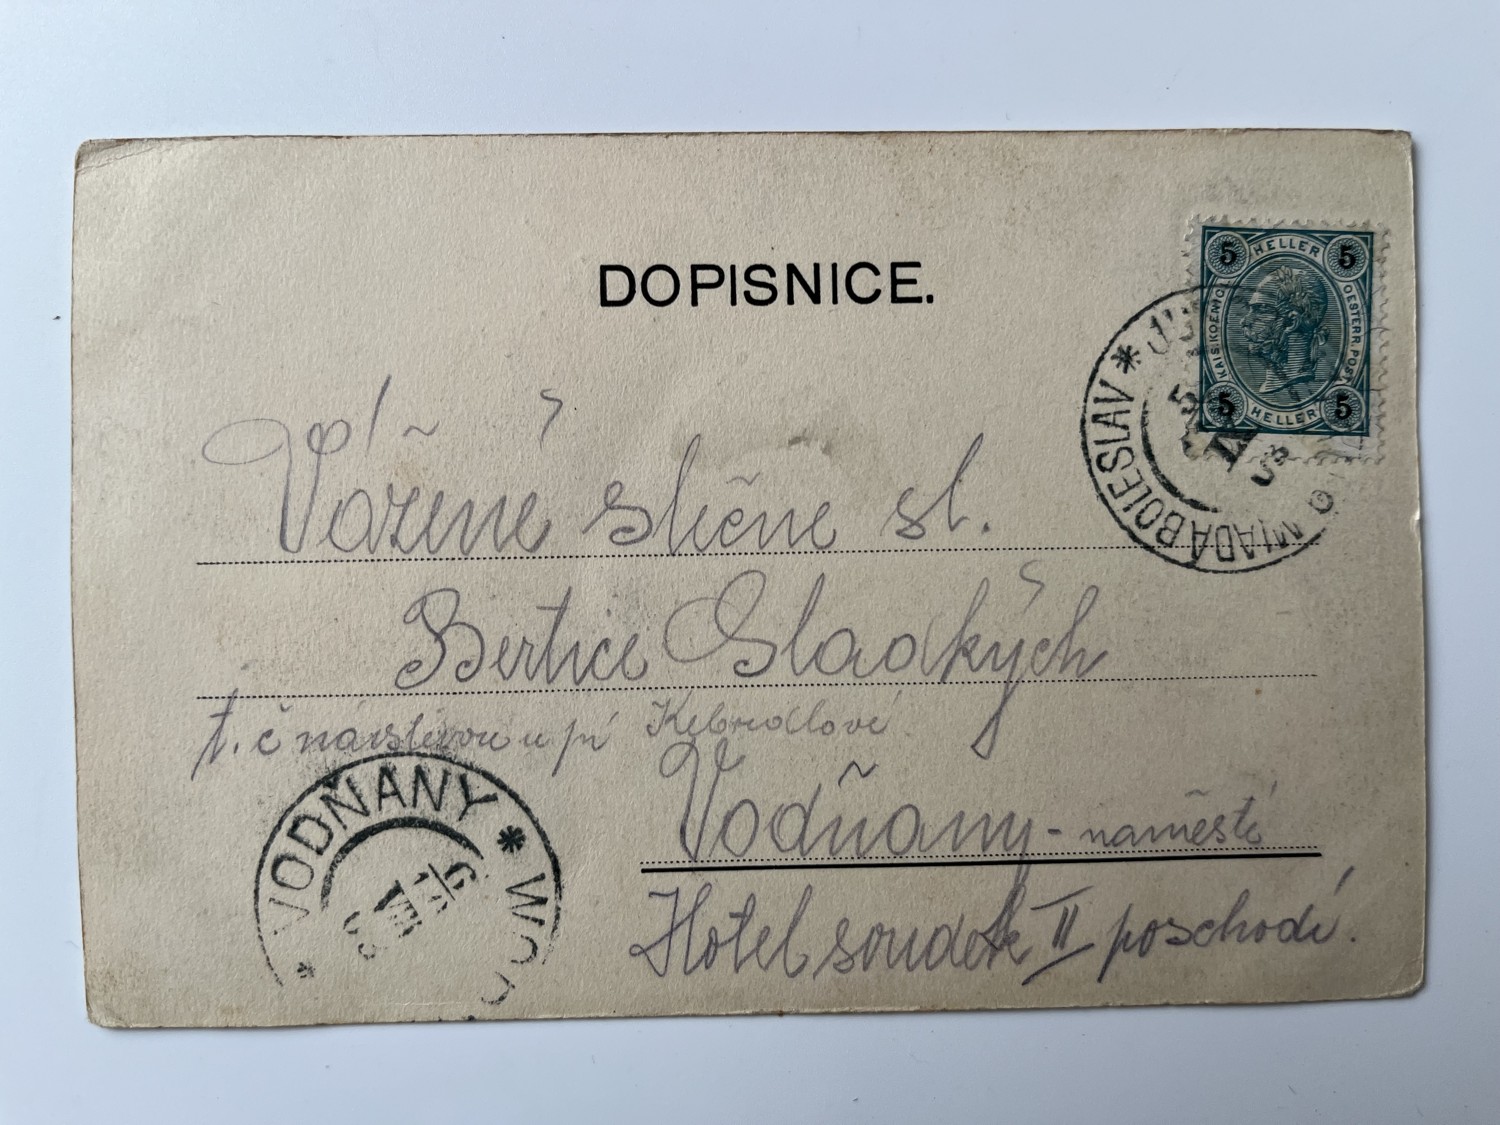 DOPISNICE.
5 HELLER 5
KAIS. KOENIGL. OESTERR. POST
5 HELLER 5
MLADÁ BOLESLAV * JU
5
IX
03
Vážené slečně sl.
Bertice Sladkých
t. č návštěvou u pí Kebrdlové
Vodňany - náměstí
Hotel soudek II poschodí.
* VODŇANY * WOD
6/
VIII